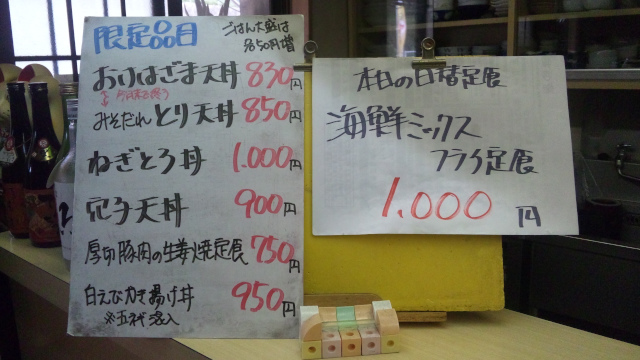 限定品目
ごはん大盛は
各50円増
おけはざま天丼 830円
みそだれとり天丼 850円
ねぎとろ丼 1.000円
穴子天丼 900円
厚切豚肉の生姜焼定食 750円
白えびかき揚げ丼 950円
本日の日替定食
海鮮ミックス
フライ定食
1.000円